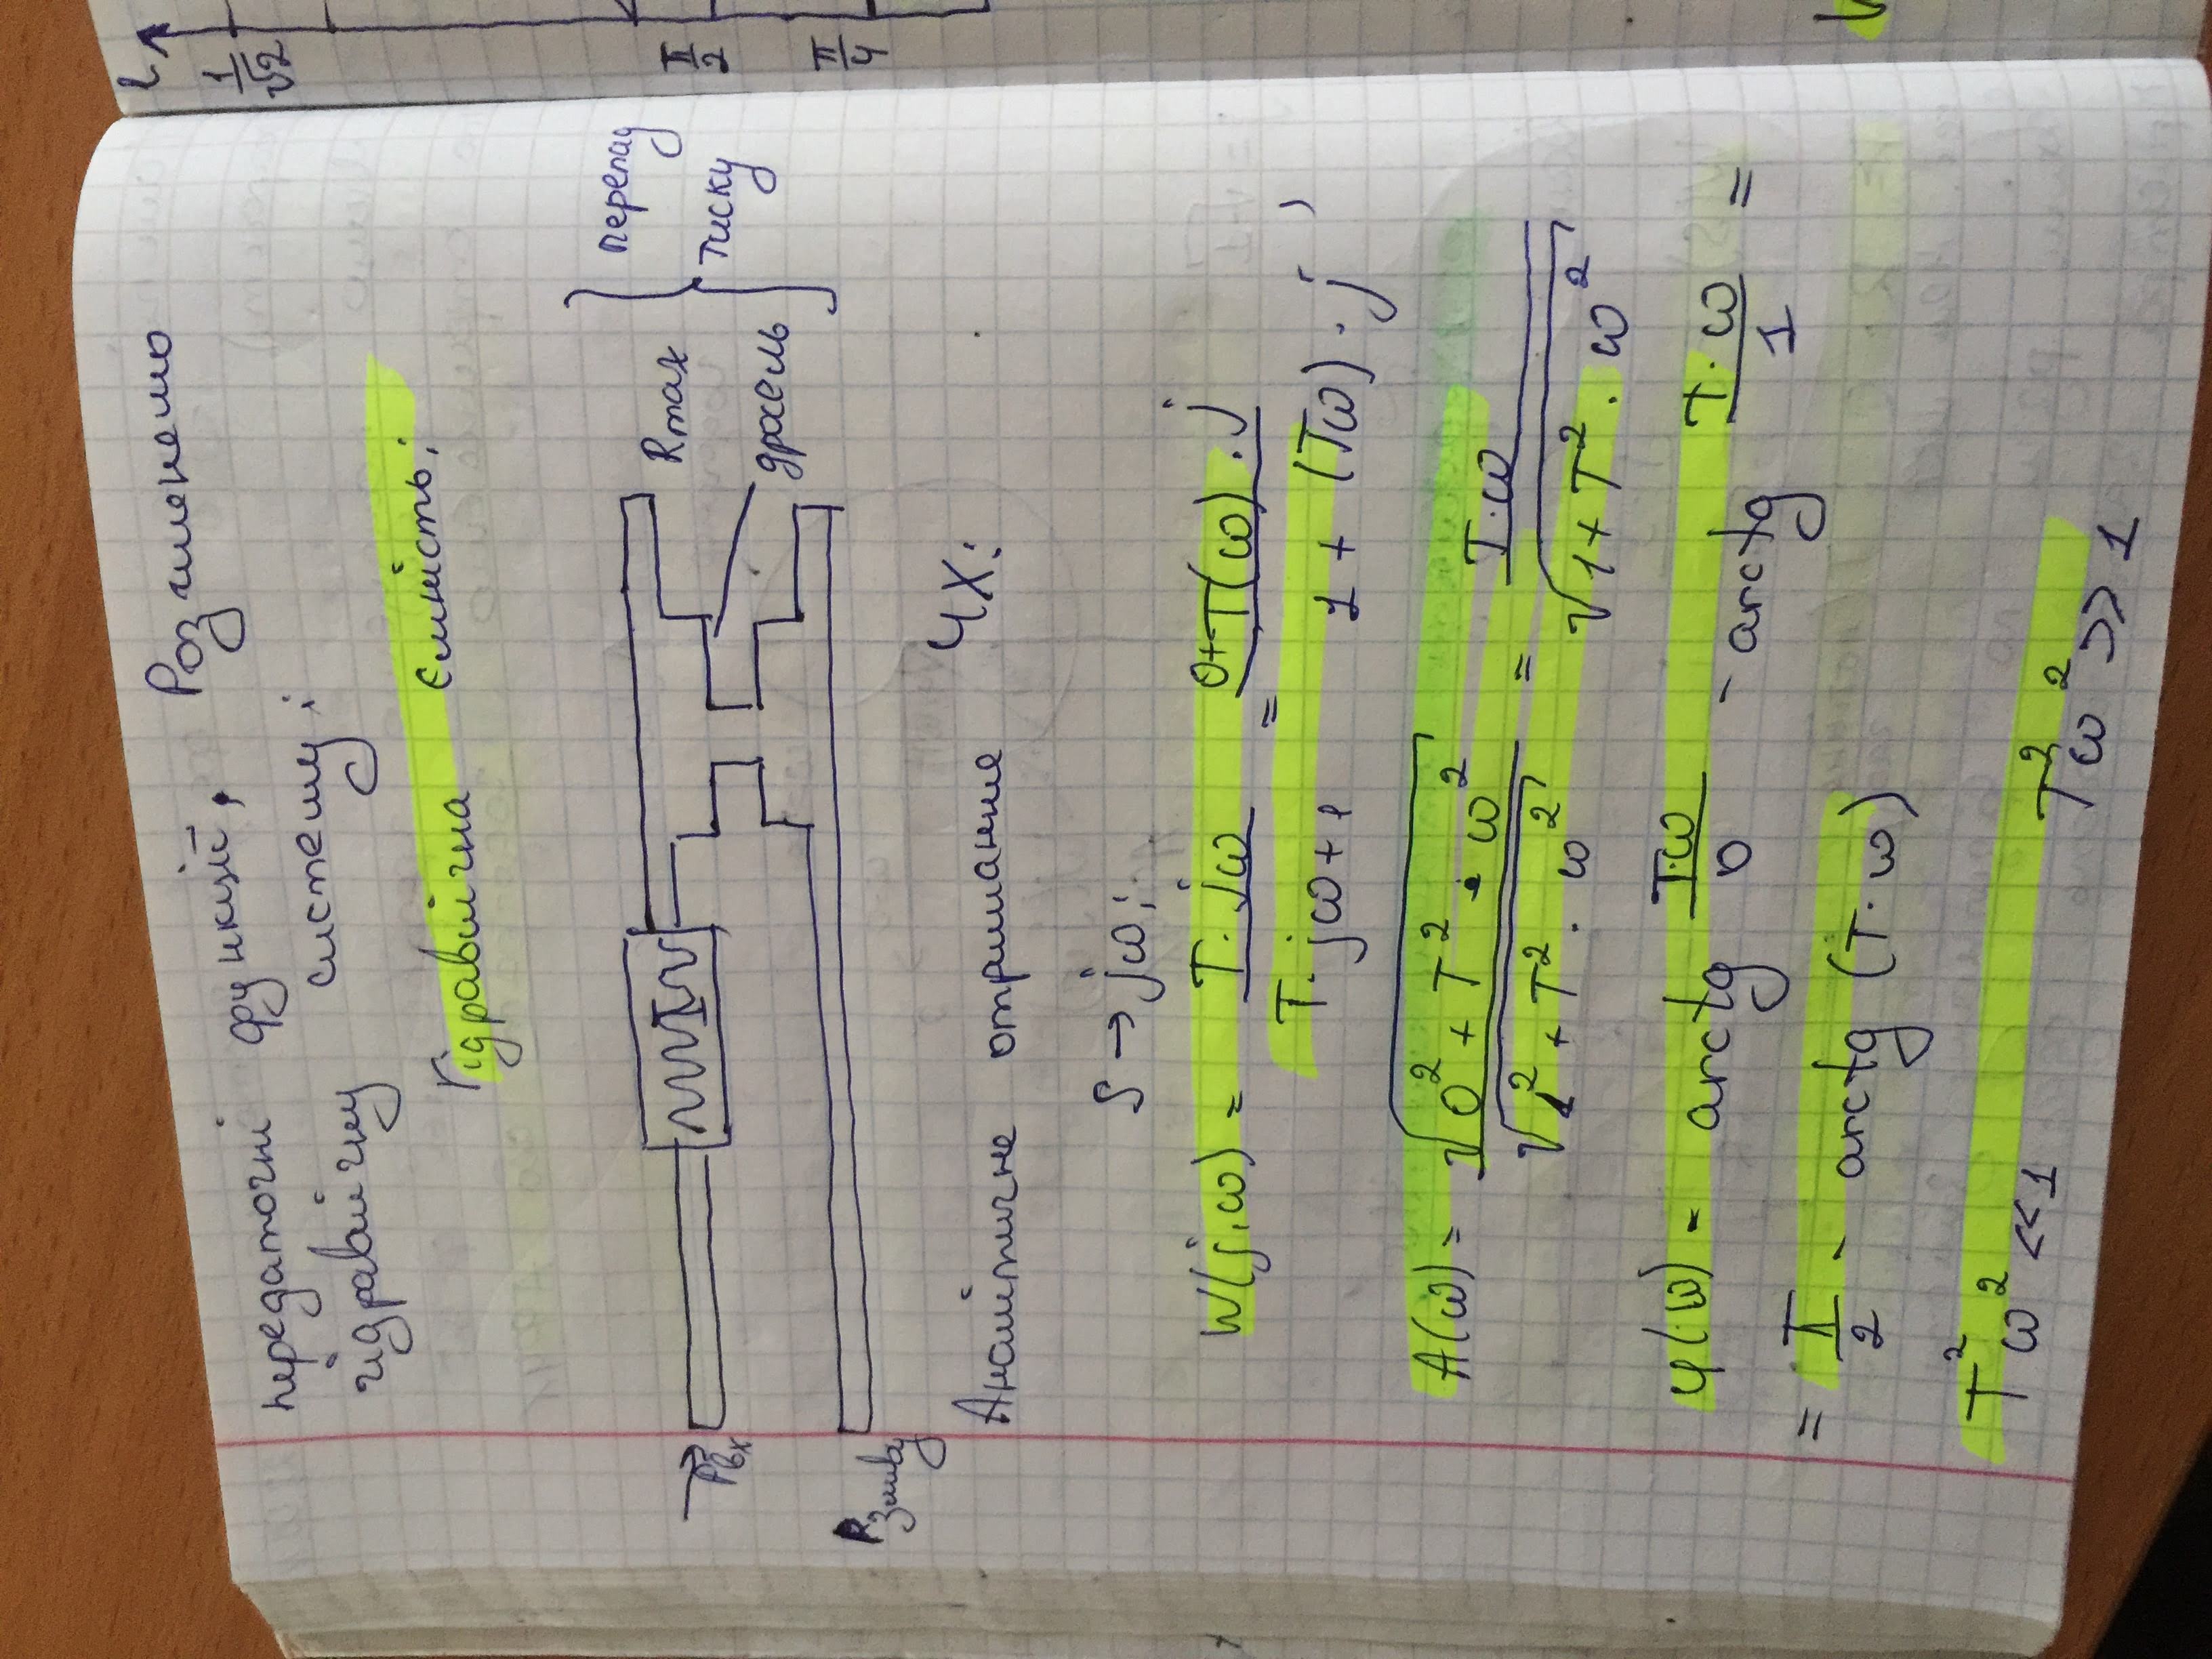 передаточні функції. Розглянемо
гідравлічну систему:
Гідравлічна ємність:
Pвх
Rmax
дросель
перепад
тиску
Pзливу
Аналітичне отримання ЧХ:
S → jω;
W(j,ω) = T·jω / T·jω+1 = 0+T(ω)·j / 1 + (Tω)·j ,
A(ω) = √0² + T²·ω² / √1² + T²·ω² = T·ω / √1+T²·ω²
φ(ω) - arctg Tω / 0 - arctg T·ω / 1 =
= π/2 - arctg (T·ω)
T²ω² <<1 T²ω² >> 1
1/√2
π/2
π/4